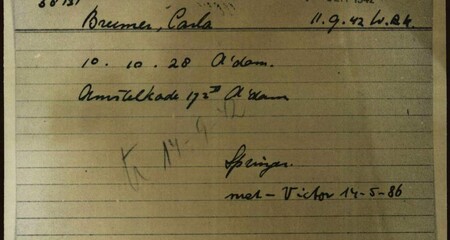 Breemer, Carla 11.9.42 W.B.K.
10. 10. 28 A'dam.
Amstelkade 17 A'dam
tr 14-9
Springer.
met - Victor 14-5-86